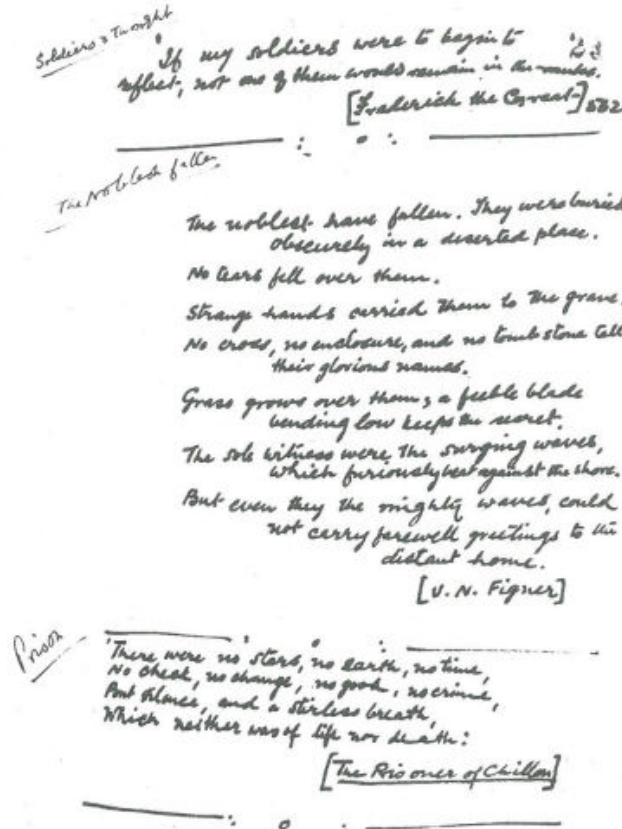 Soldiers & Thought
'If my soldiers were to begin to
reflect, not one of them would remain in the ranks.
[Frederick the Great] 562
The Noblest fallen
The noblest have fallen. They were buried
obscurely in a deserted place.
No tears fell over them.
Strange hands carried them to the grave.
No cross, no enclosure, and no tomb stone tell
their glorious names.
Grass grows over them, a feeble blade
bending low keeps the secret.
The sole witness were the surging waves,
which furiously beat against the shore.
But even they the mighty waves, could
not carry farewell greetings to the
distant home.
[V. N. Figner]
Prison
'There were no stars, no earth, no time,
No check, no change, no good, no crime,
But silence, and a stirless breath,
Which neither was of life nor death:
[The Prisoner of Chillon]